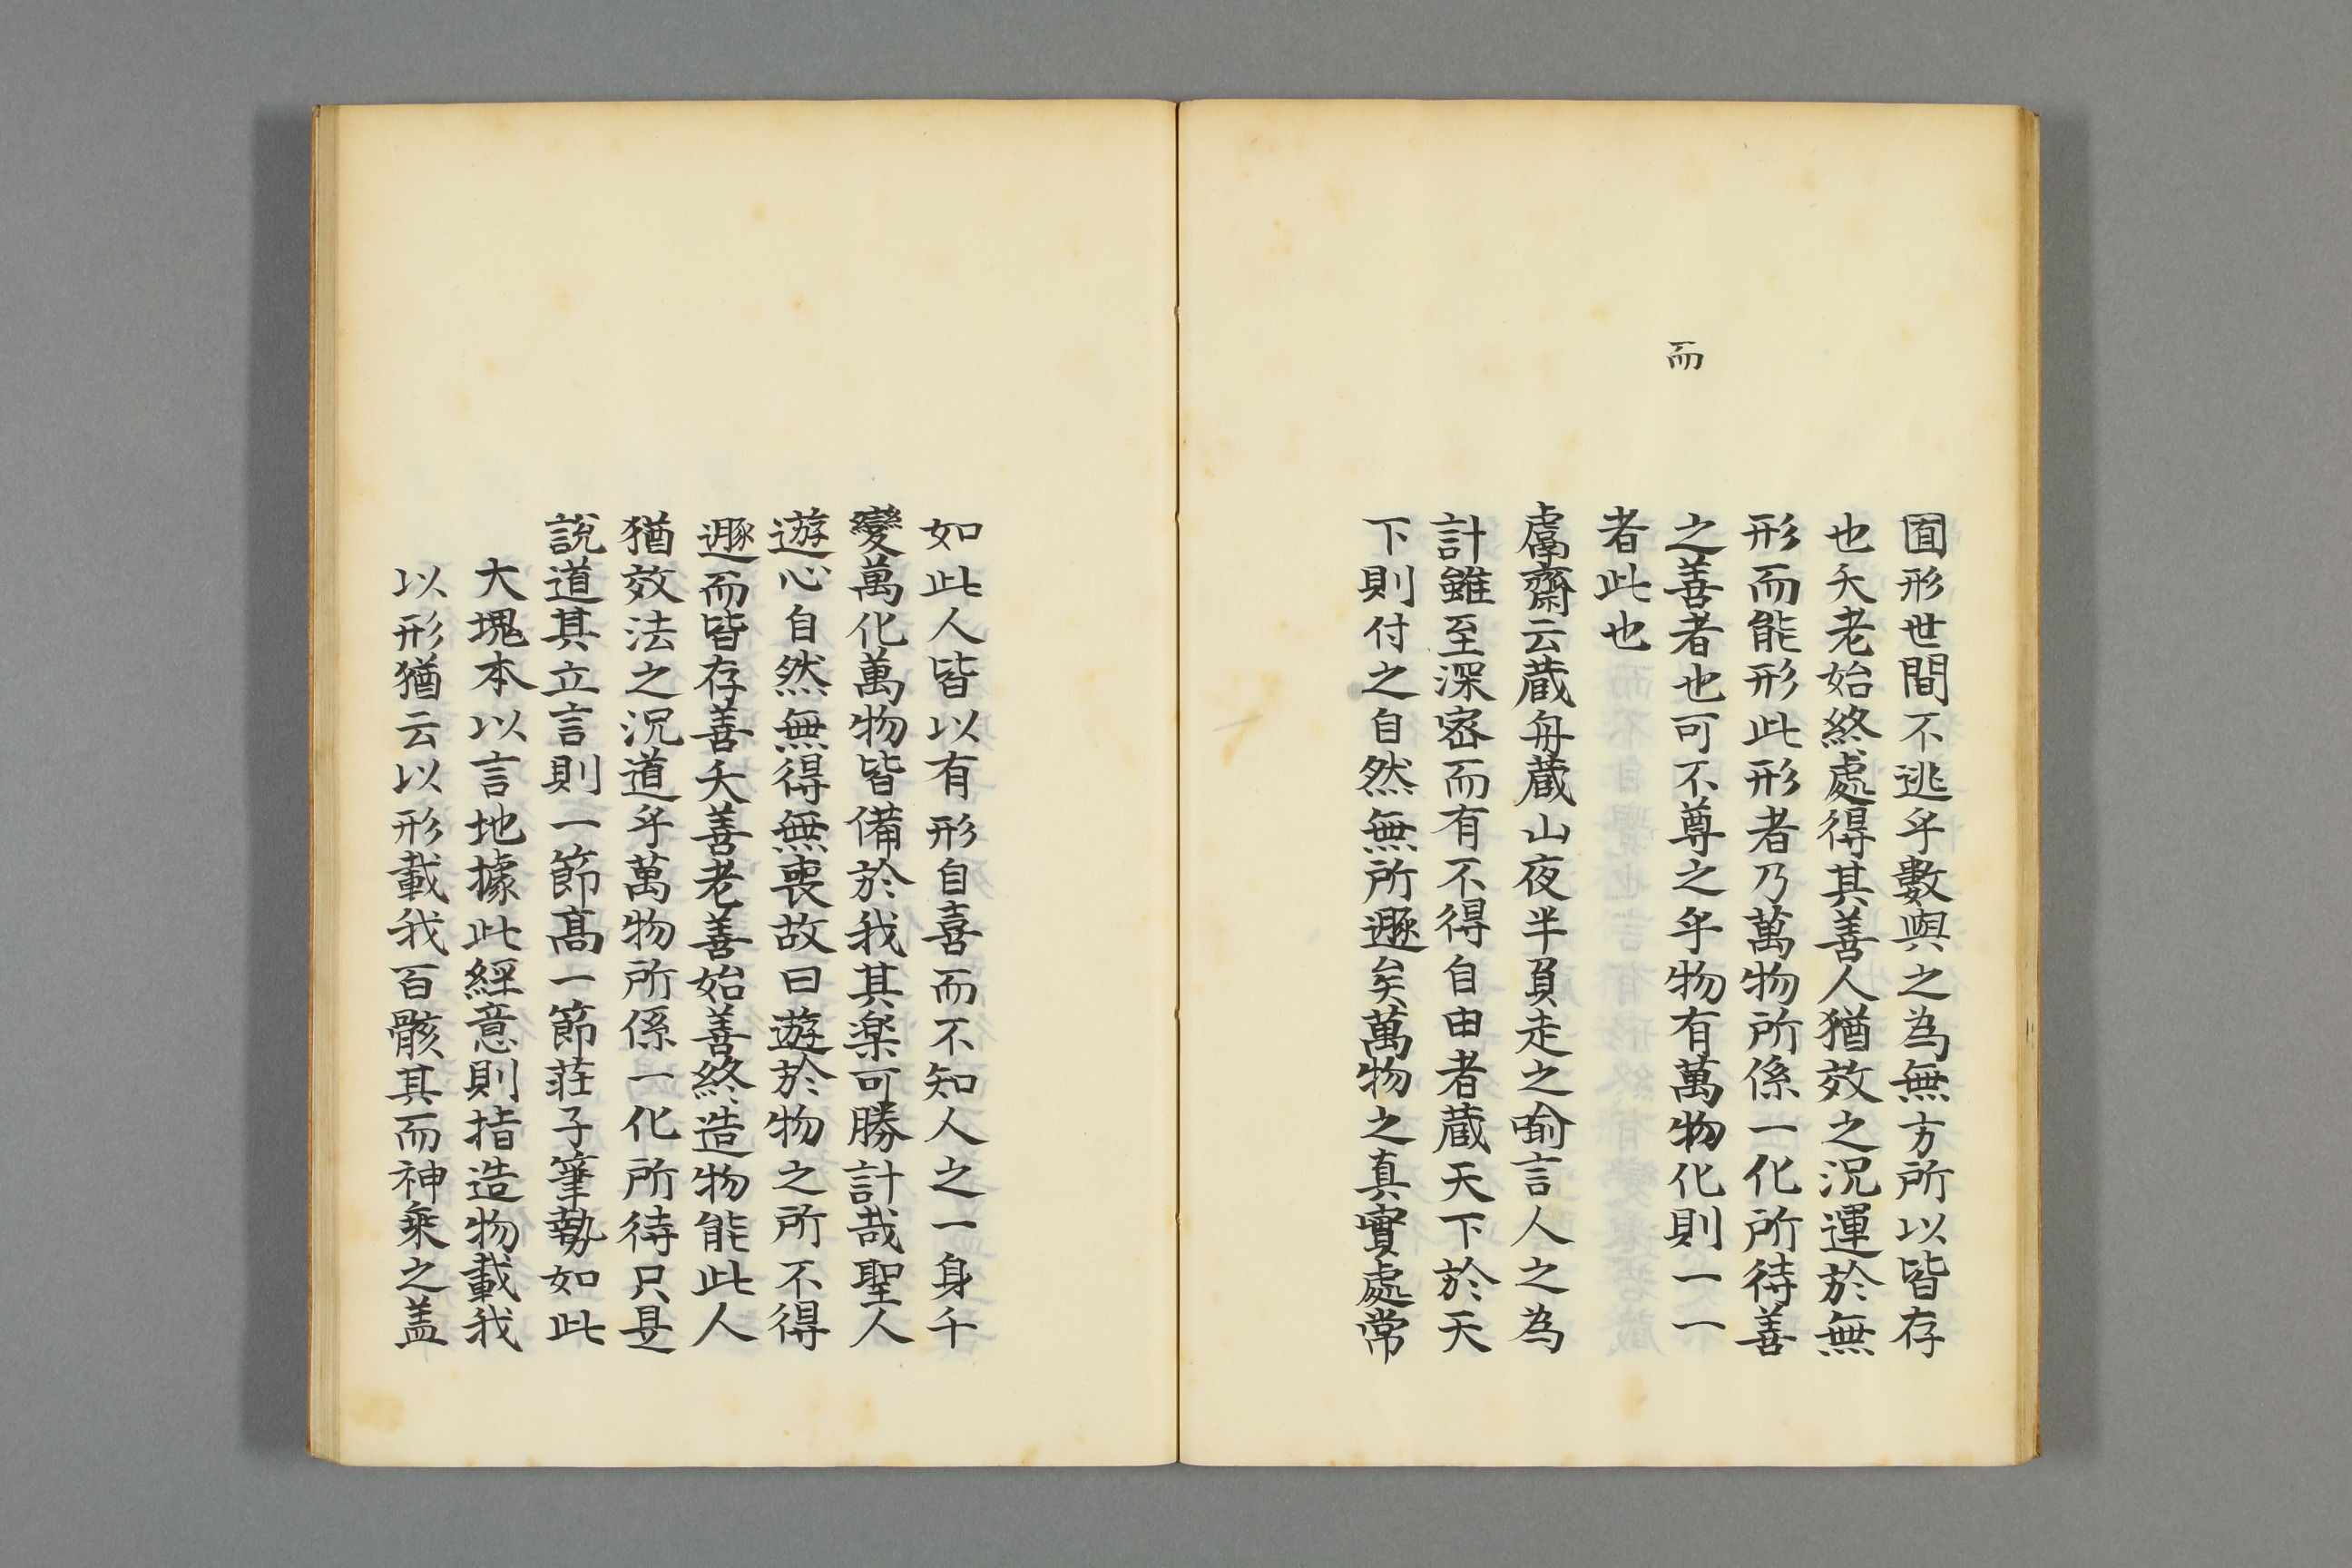 而
囿形世間不逃乎數與之為無方所以皆存
也夭老始終處得其善人猶效之況運於無
形而能形此形者乃萬物所係一化所待善
之善者也可不尊之乎物有萬物化則一一
者此也
鬳齋云蔵舟蔵山夜半負走之喻言人之為
計雖至深密而有不得自由者蔵天下於天
下則付之自然無所遯矣萬物之真實處常
如此人皆以有形自喜而不知人之一身千
變萬化萬物皆備於我其楽可勝計哉聖人
遊心自然無得無喪故曰遊於物之所不得
遯而皆存善夭善老善始善終造物能此人
猶效法之況道乎萬物所係一化所待只是
說道其立言則一節髙一節莊子筆勢如此
大塊本以言地據此經意則指造物載我
以形猶云以形載我百骸其而神乘之盖